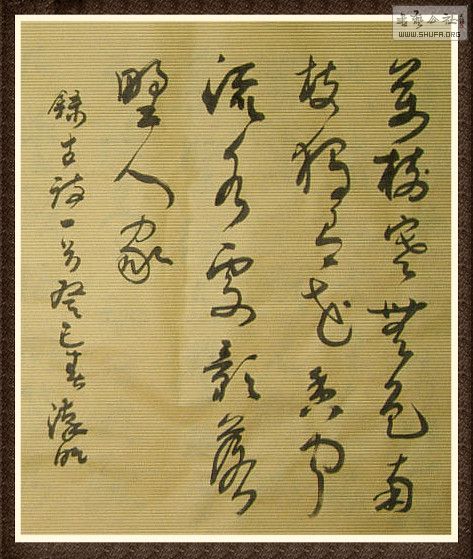 書藝公社
WWW.SHUFA.ORG
萬樹寒無色南
枝獨有花香聞
流水處影落
野人家
錄古詩一首癸巳春